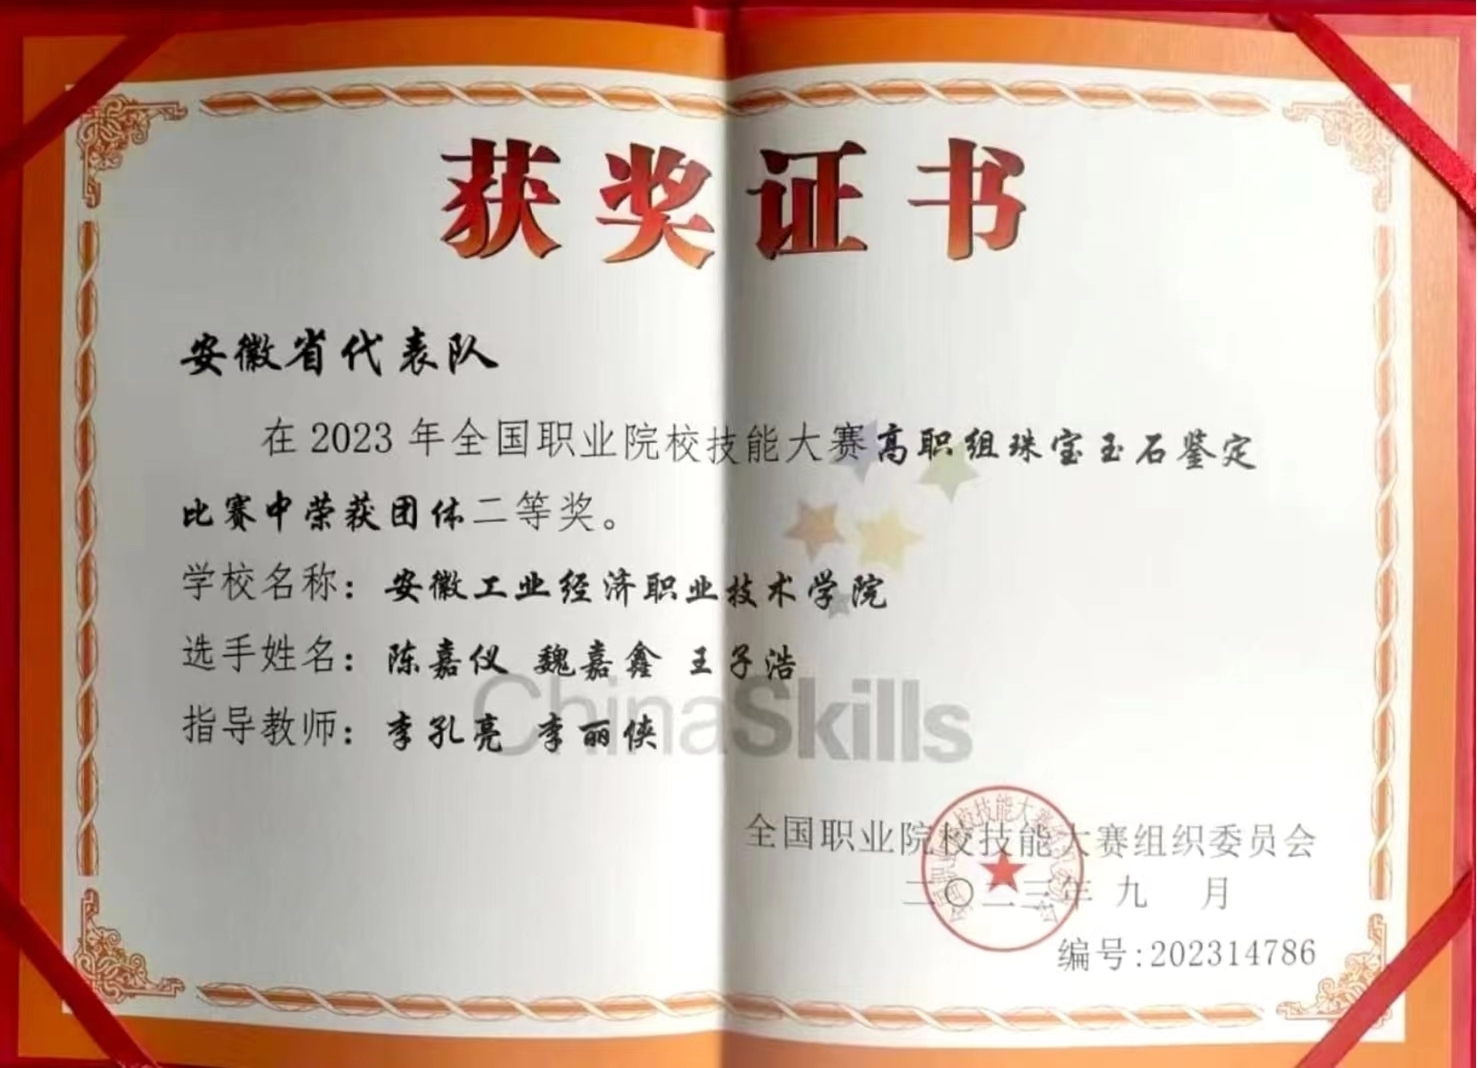 获奖证书
安徽省代表队
在2023年全国职业院校技能大赛高职组珠宝玉石鉴定
比赛中荣获团体二等奖。
学校名称：安徽工业经济职业技术学院
选手姓名：陈嘉仪 魏嘉鑫 王子浩
指导教师：李孔亮 李丽侠
ChinaSkills
全国职业院校技能大赛组织委员会
二〇二三年九 月
编号:202314786